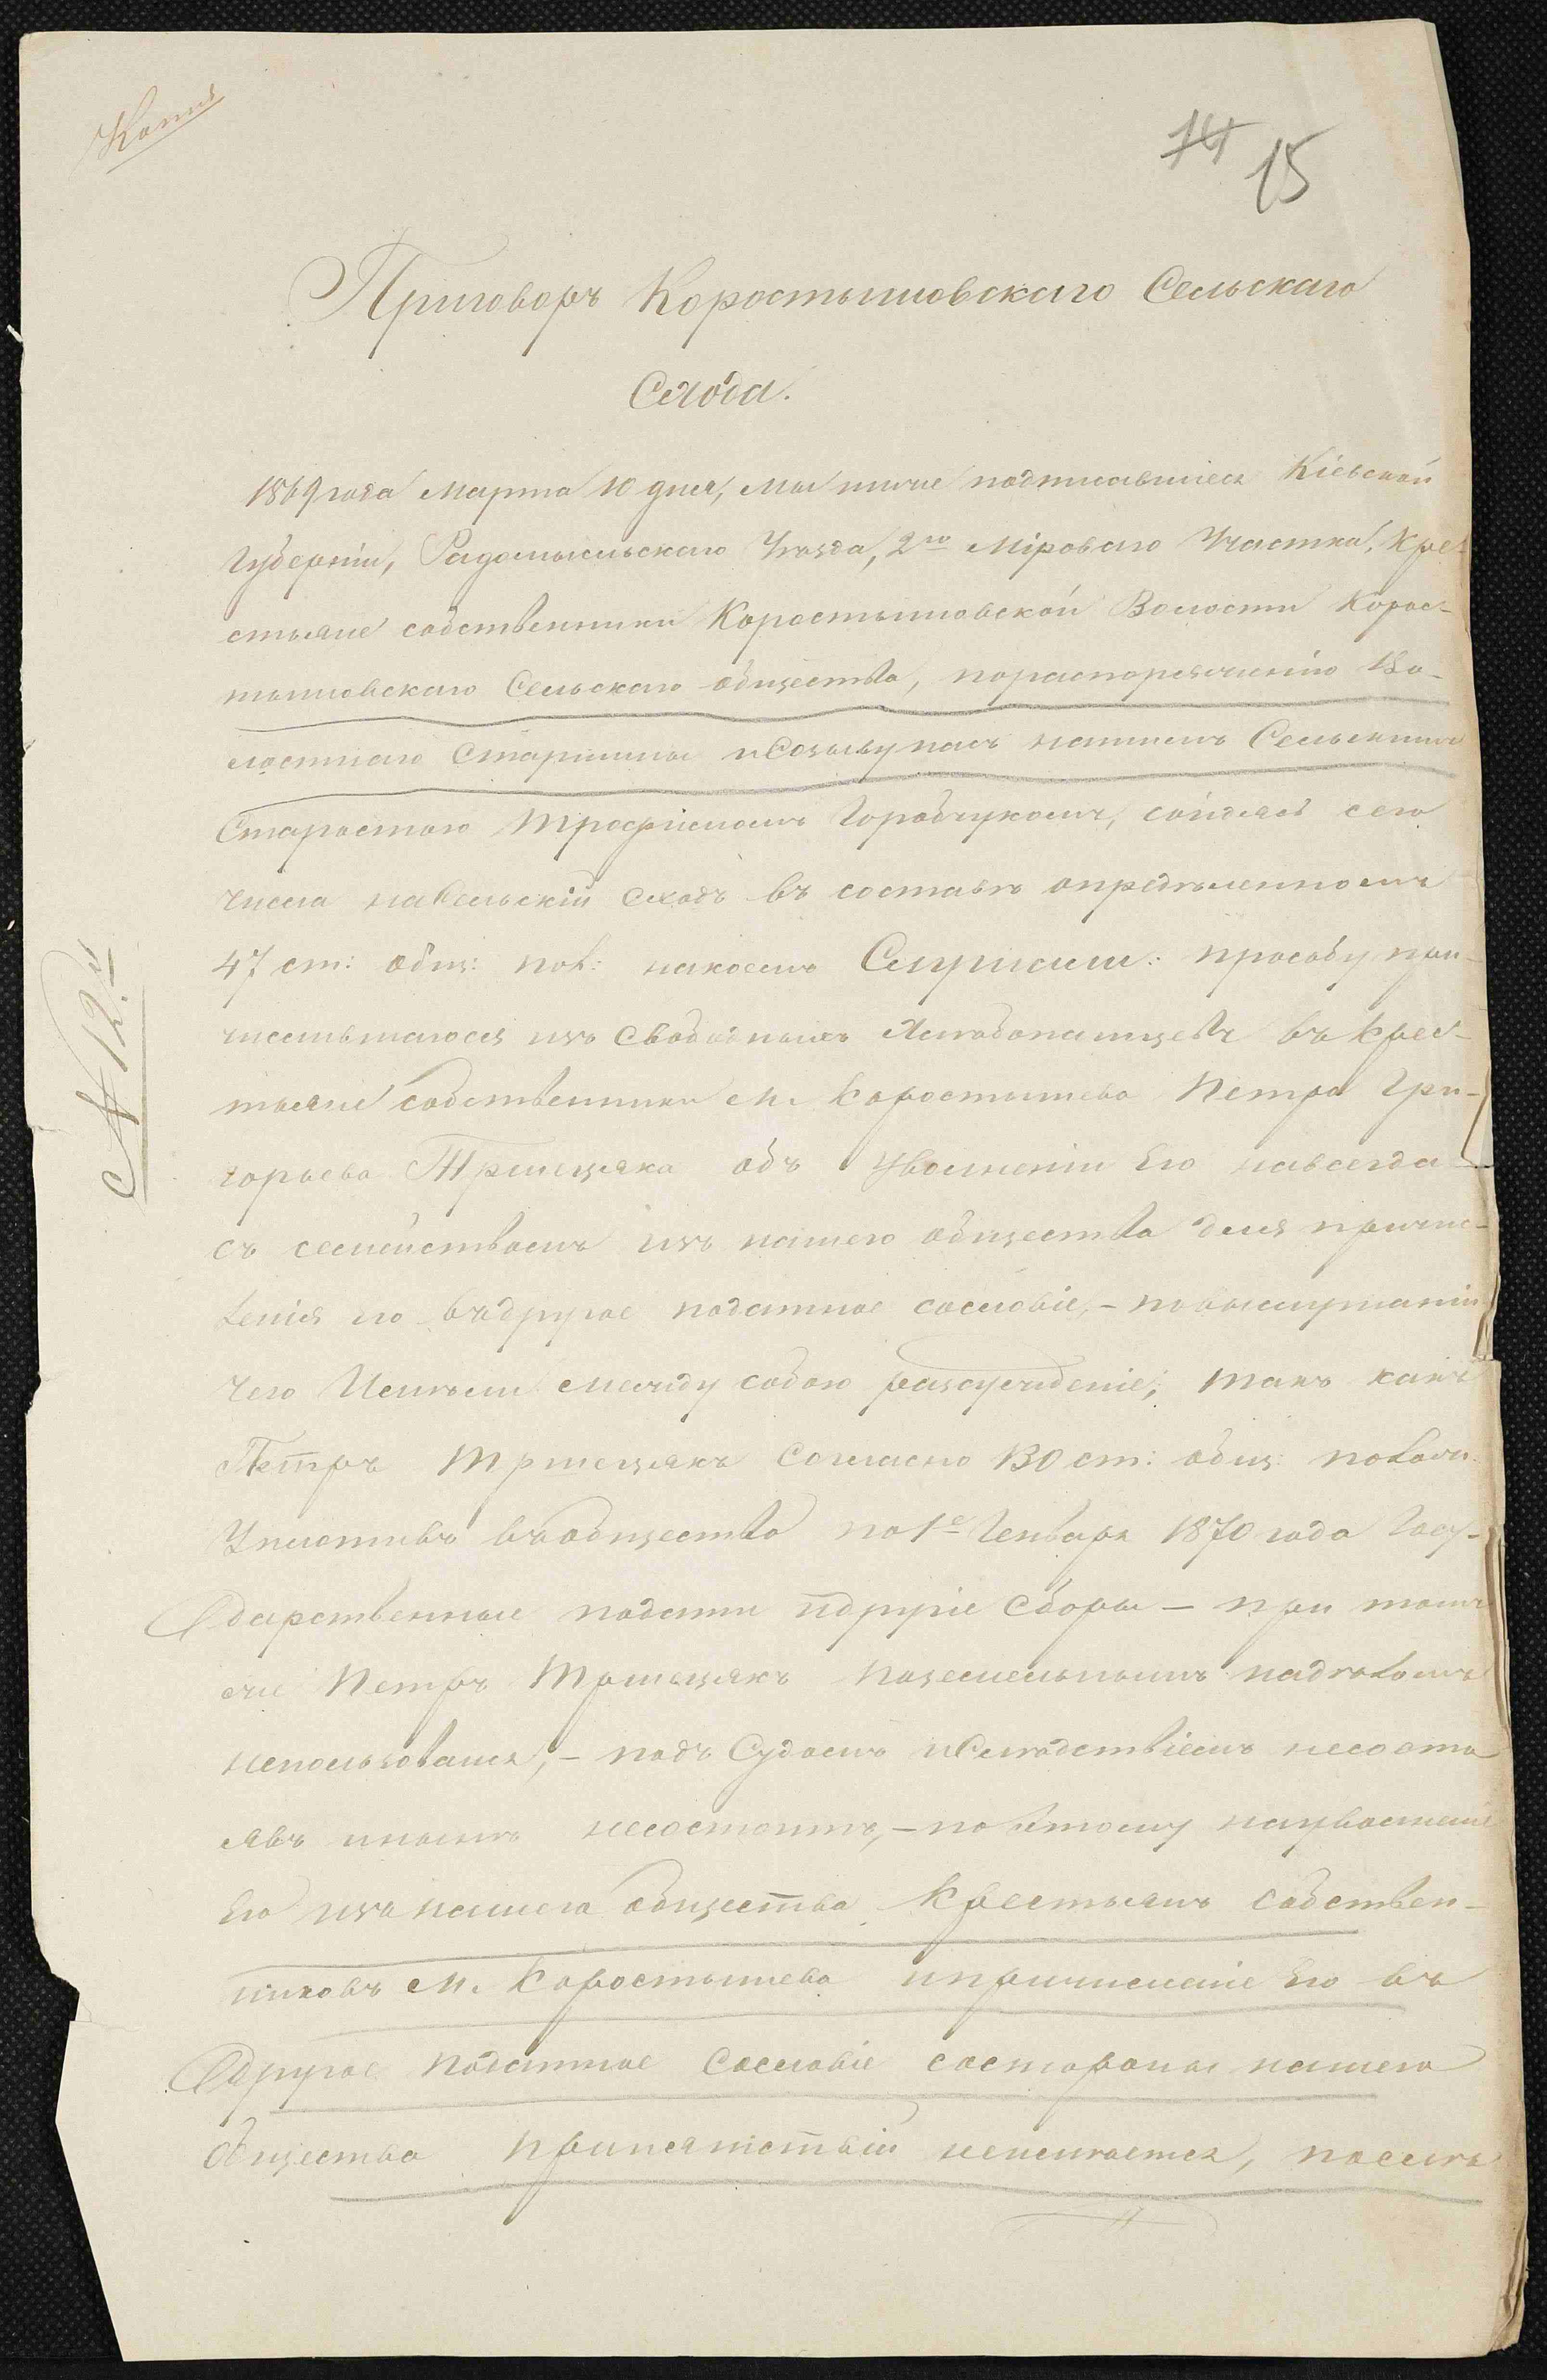 Копія
14 15
Приговоръ Коростышовскаго Сельскаго
Схода.
1869 года Марта 10 дня, мы ниже подписавшіеся Кіевской
Губерніи, Радомысльскаго Уѣзда, 2го Міроваго Участка, Кре-
стьяне собственники Коростышовской Волости Корос-
тышовскаго Сельскаго общества, по распоряженію Во-
лостнаго Старшины и Созыву насъ нашимъ Сельскимъ
Старостою Трофимомъ Горобчукомъ, сойдясь сего
числа на Сельскій Сходъ въ составѣ опредѣленномъ
47 ст: общ: пол: на коемъ Слушали: просьбу при-
численнаго изъ Свободныхъ Хлѣбопашцевъ въ крес-
тьяне собственники м. Коростышева Петра Гри-
горьева Трищяка объ Увольненіи Его навсегда
съ семействомъ изъ нашего общества для причис-
ленія его въ другое податное сословіе, – по выслушаніи
чего Имѣли между собою разсужденіе; такъ какъ
Петръ Тршецякъ Согласно 130 ст: общ: полож.
Уплотивъ въ общество по 1е Генваря 1870 года Госу-
дарственные подати и другіе Сборы – при томъ
же Петръ Тршецякъ поземельнымъ надѣломъ
непользовался, – подъ Судомъ и Слѣдствіемъ несосто
ялъ и нынѣ несостоитъ, – по этому на увольненіе
Его изъ нашего общества Крестьянъ собствен-
никовъ м. Коростышева и причисленіе Его въ
другое податное Сословіе состороны нашего
общества припятствій неимѣется, посему
№ 12.й